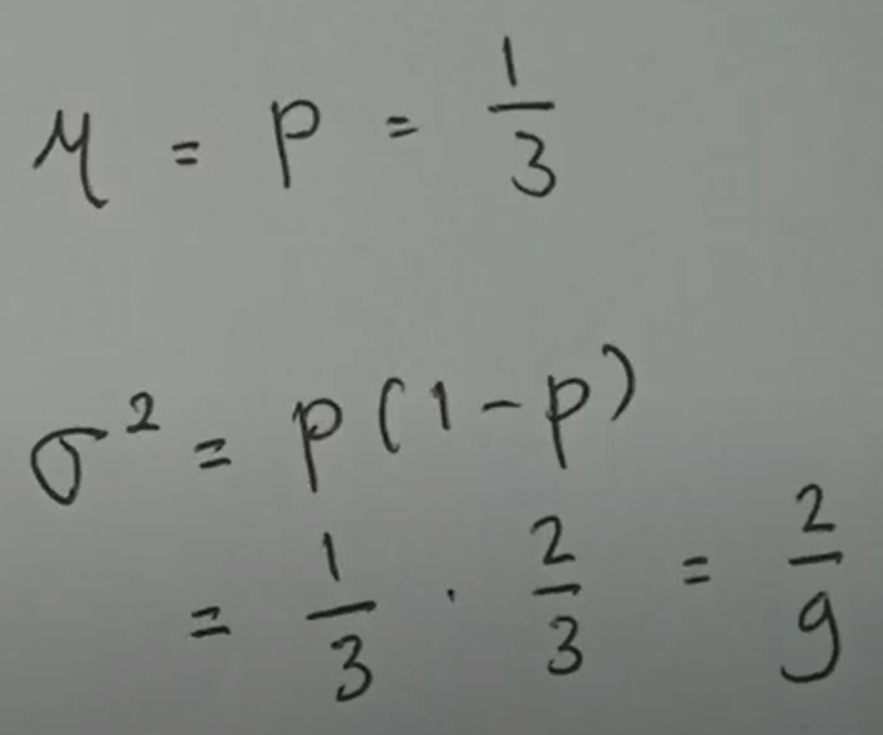 μ = p = 1/3
σ² = p(1-p)
= 1/3 · 2/3 = 2/9